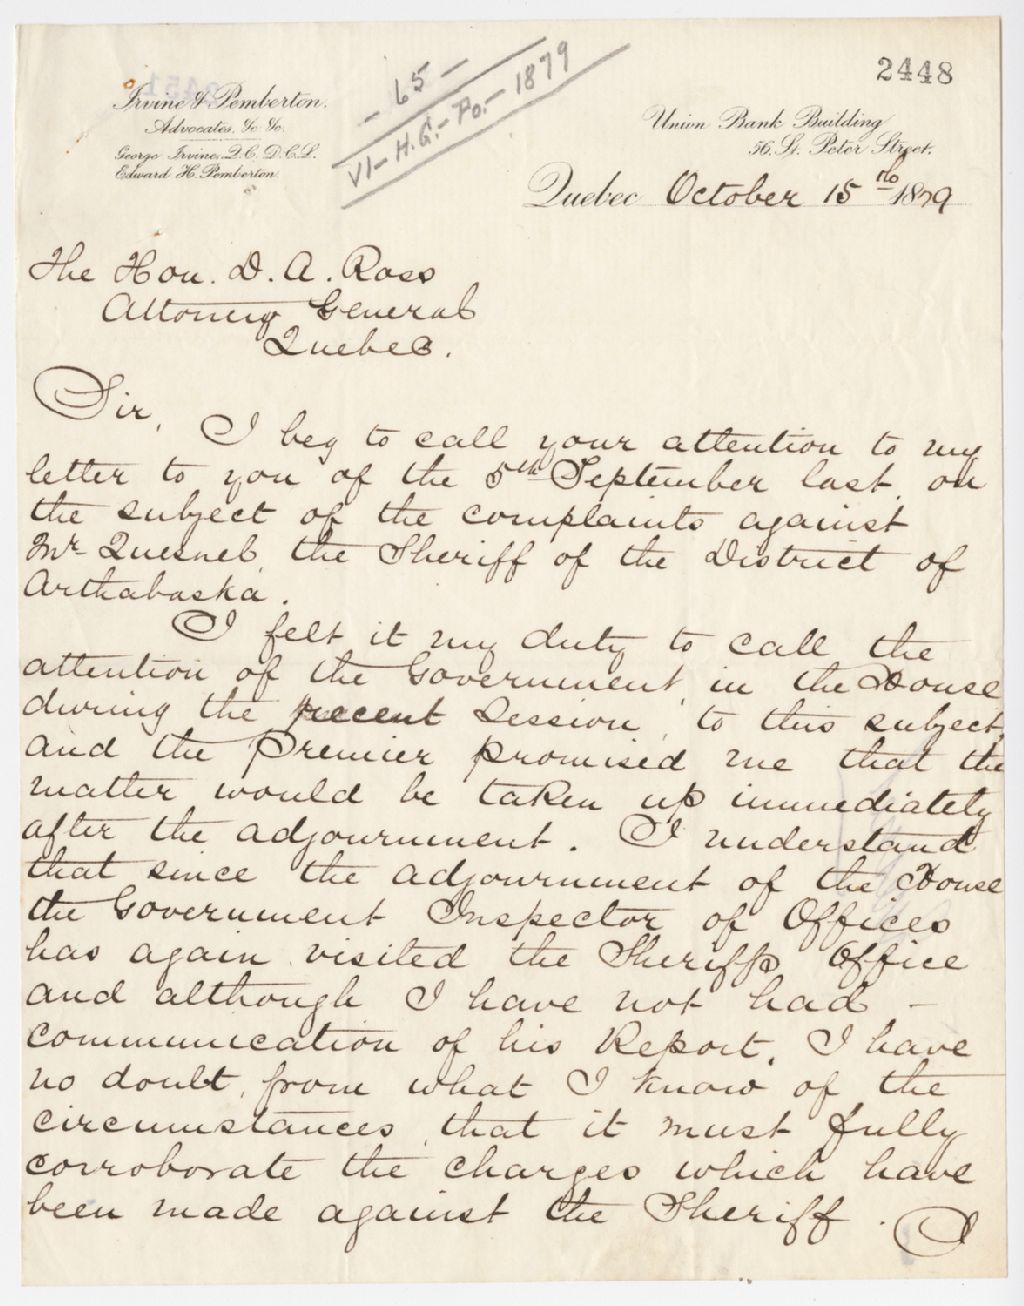 2448
- 65 -
VI - H.G. - Po. - 1879
Irvine & Pemberton.
Advocates, &c. &c.
George Irvine, Q.C. D.C.L.
Edward H. Pemberton
Union Bank Building
56, St. Peter Street.
Quebec October 15th 1879
The Hon. D. A. Ross
Attorney General
Quebec.
Sir,
I beg to call your attention to my
letter to you of the 5th September last, on
the subject of the complaints against
Mr Quesnel, the Sheriff of the District of
Arthabaska.
I felt it my duty to call the
attention of the Government, in the House
during the recent Session, to this subject,
and the Premier promised me that the
matter would be taken up immediately
after the adjournment. I understand
that since the adjournment of the House
the Government Inspector of Offices
has again visited the Sheriff's Office
and although I have not had -
communication of his Report, I have
no doubt, from what I know of the
circumstances, that it must fully
corroborate the charges which have
been made against the Sheriff. I